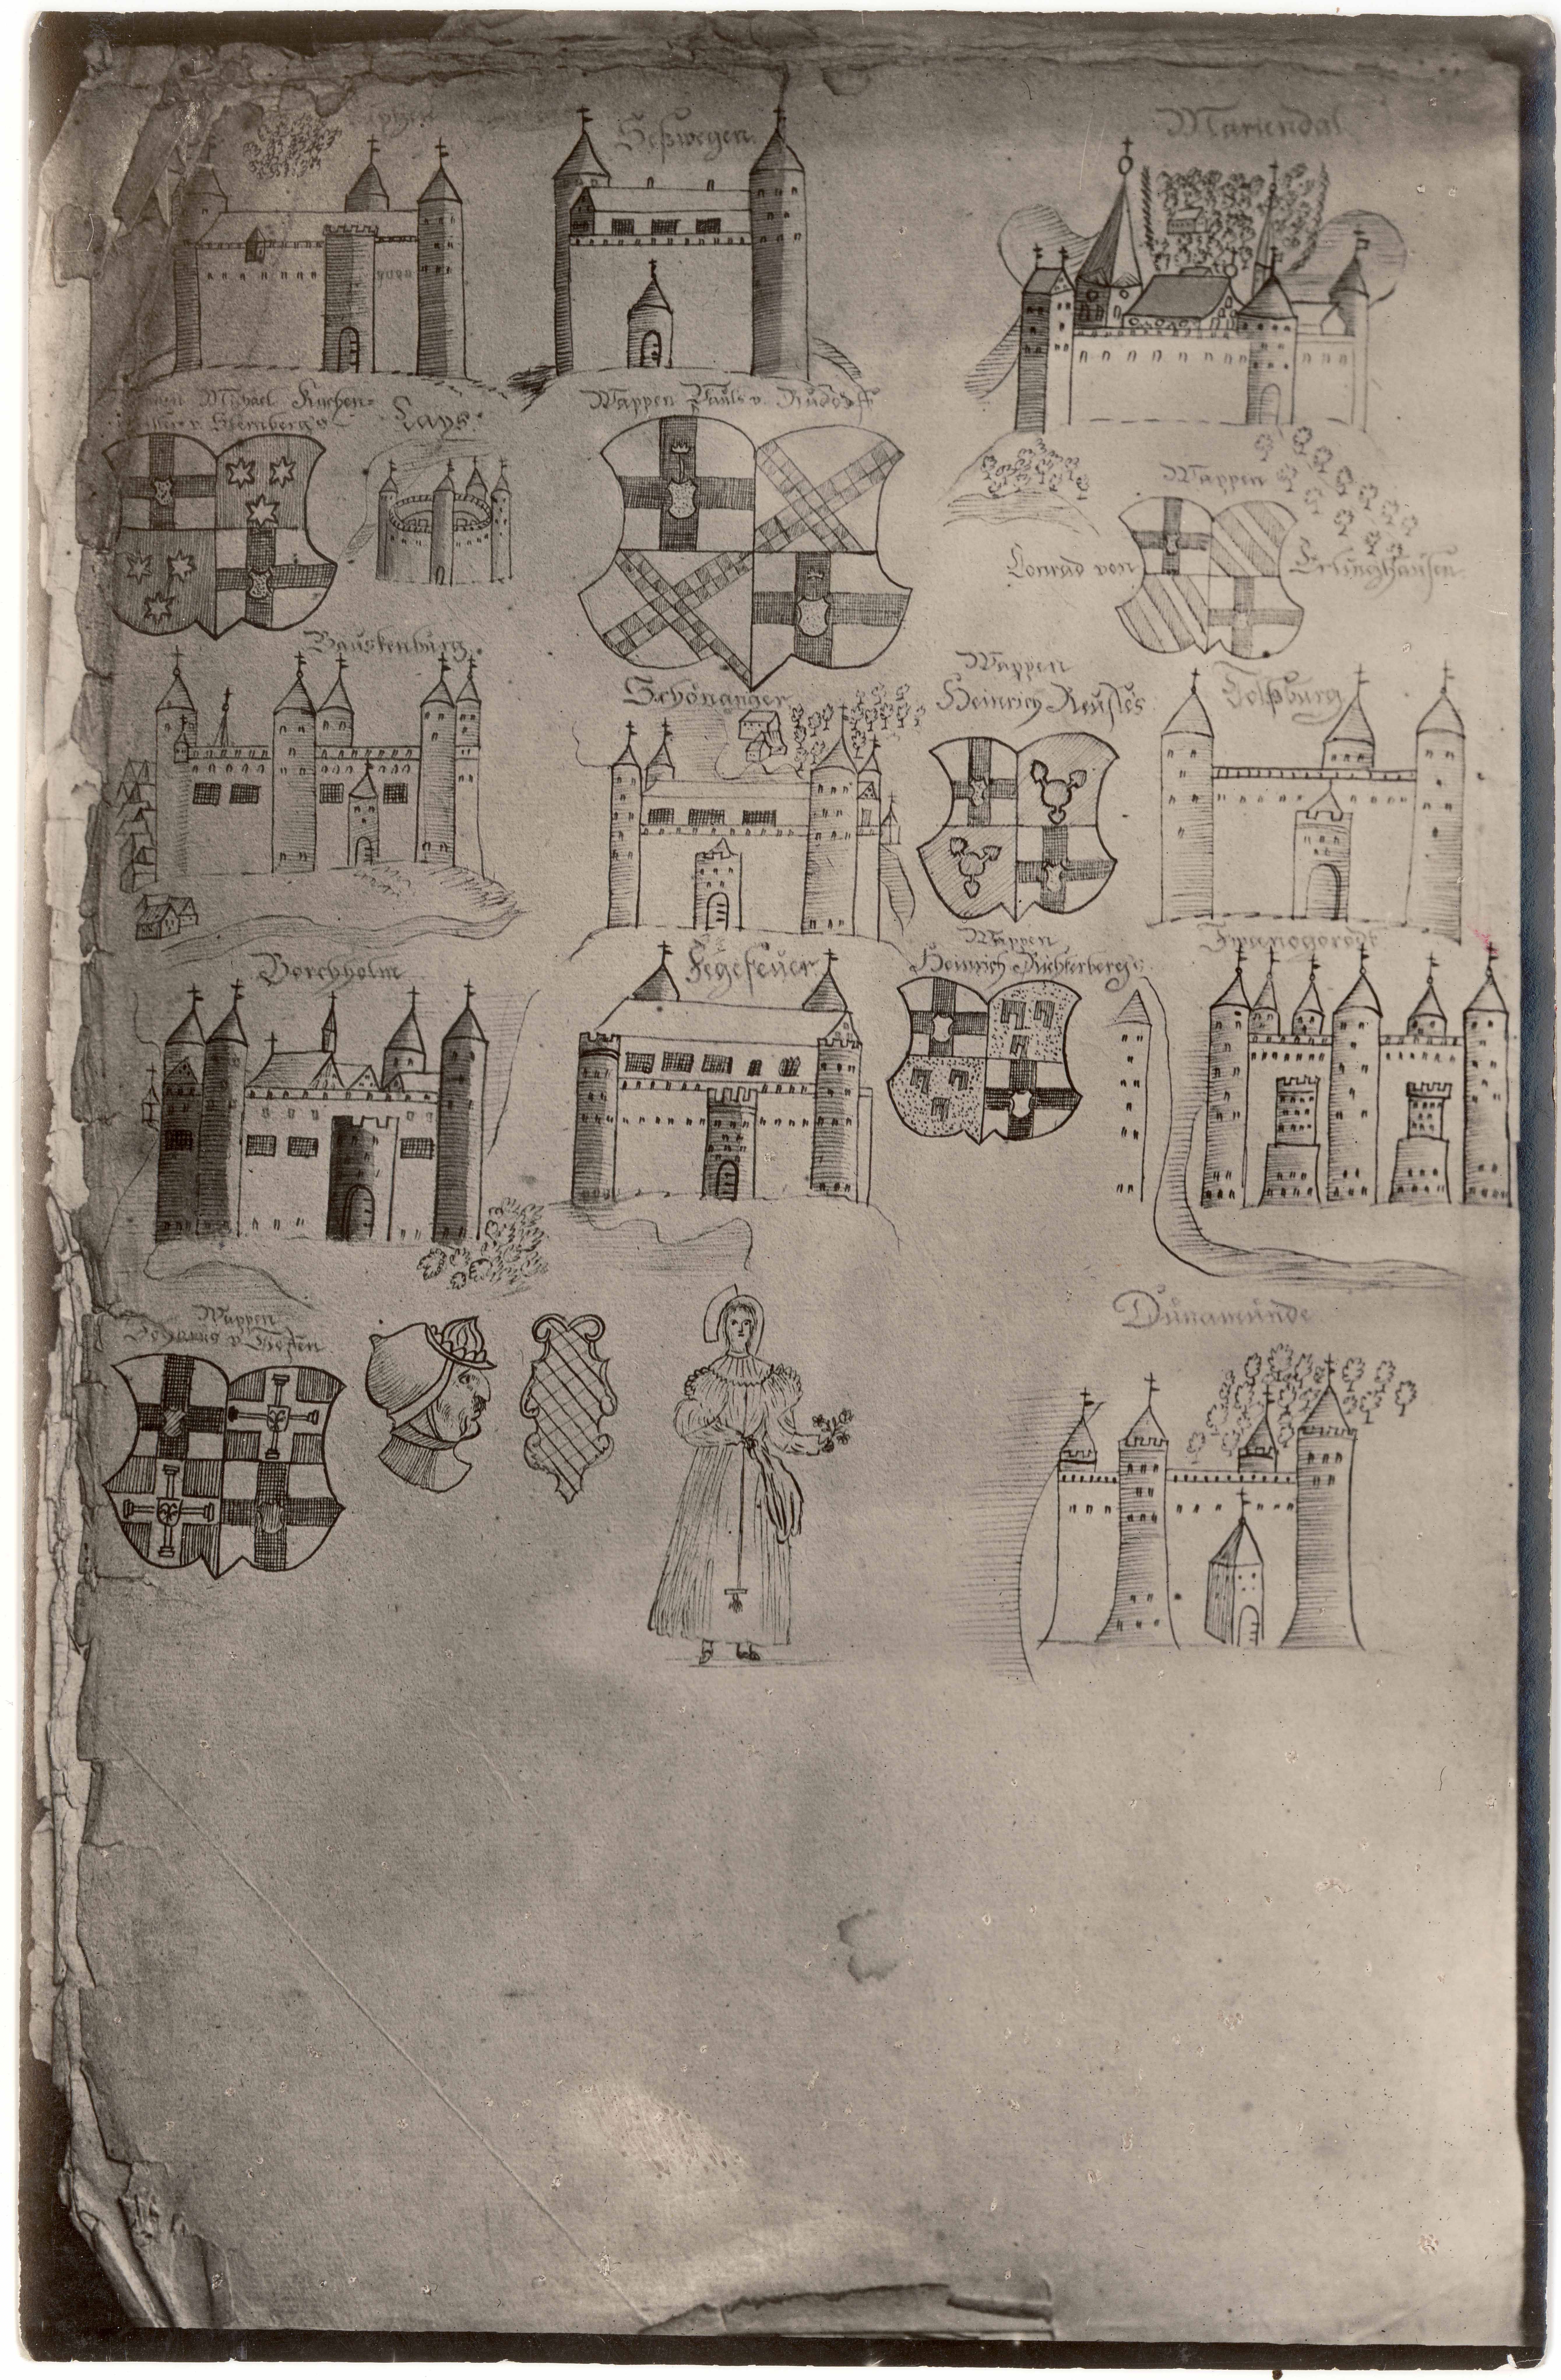 Seßwegen.
Mariendal
Michael Kuchen=
v. Sternberg's
Lays.
Wappen Pauls v. Rußdorff
Wappen
Conrad von Erlinghausen.
Bauskenburg.
Schönanger
Wappen
Heinrich Reußes
Tolßburg
Borchholm
Fegefeuer
Wappen
Heinrich Richterberg's
Wappen
v. Tiefen
Dunamunde